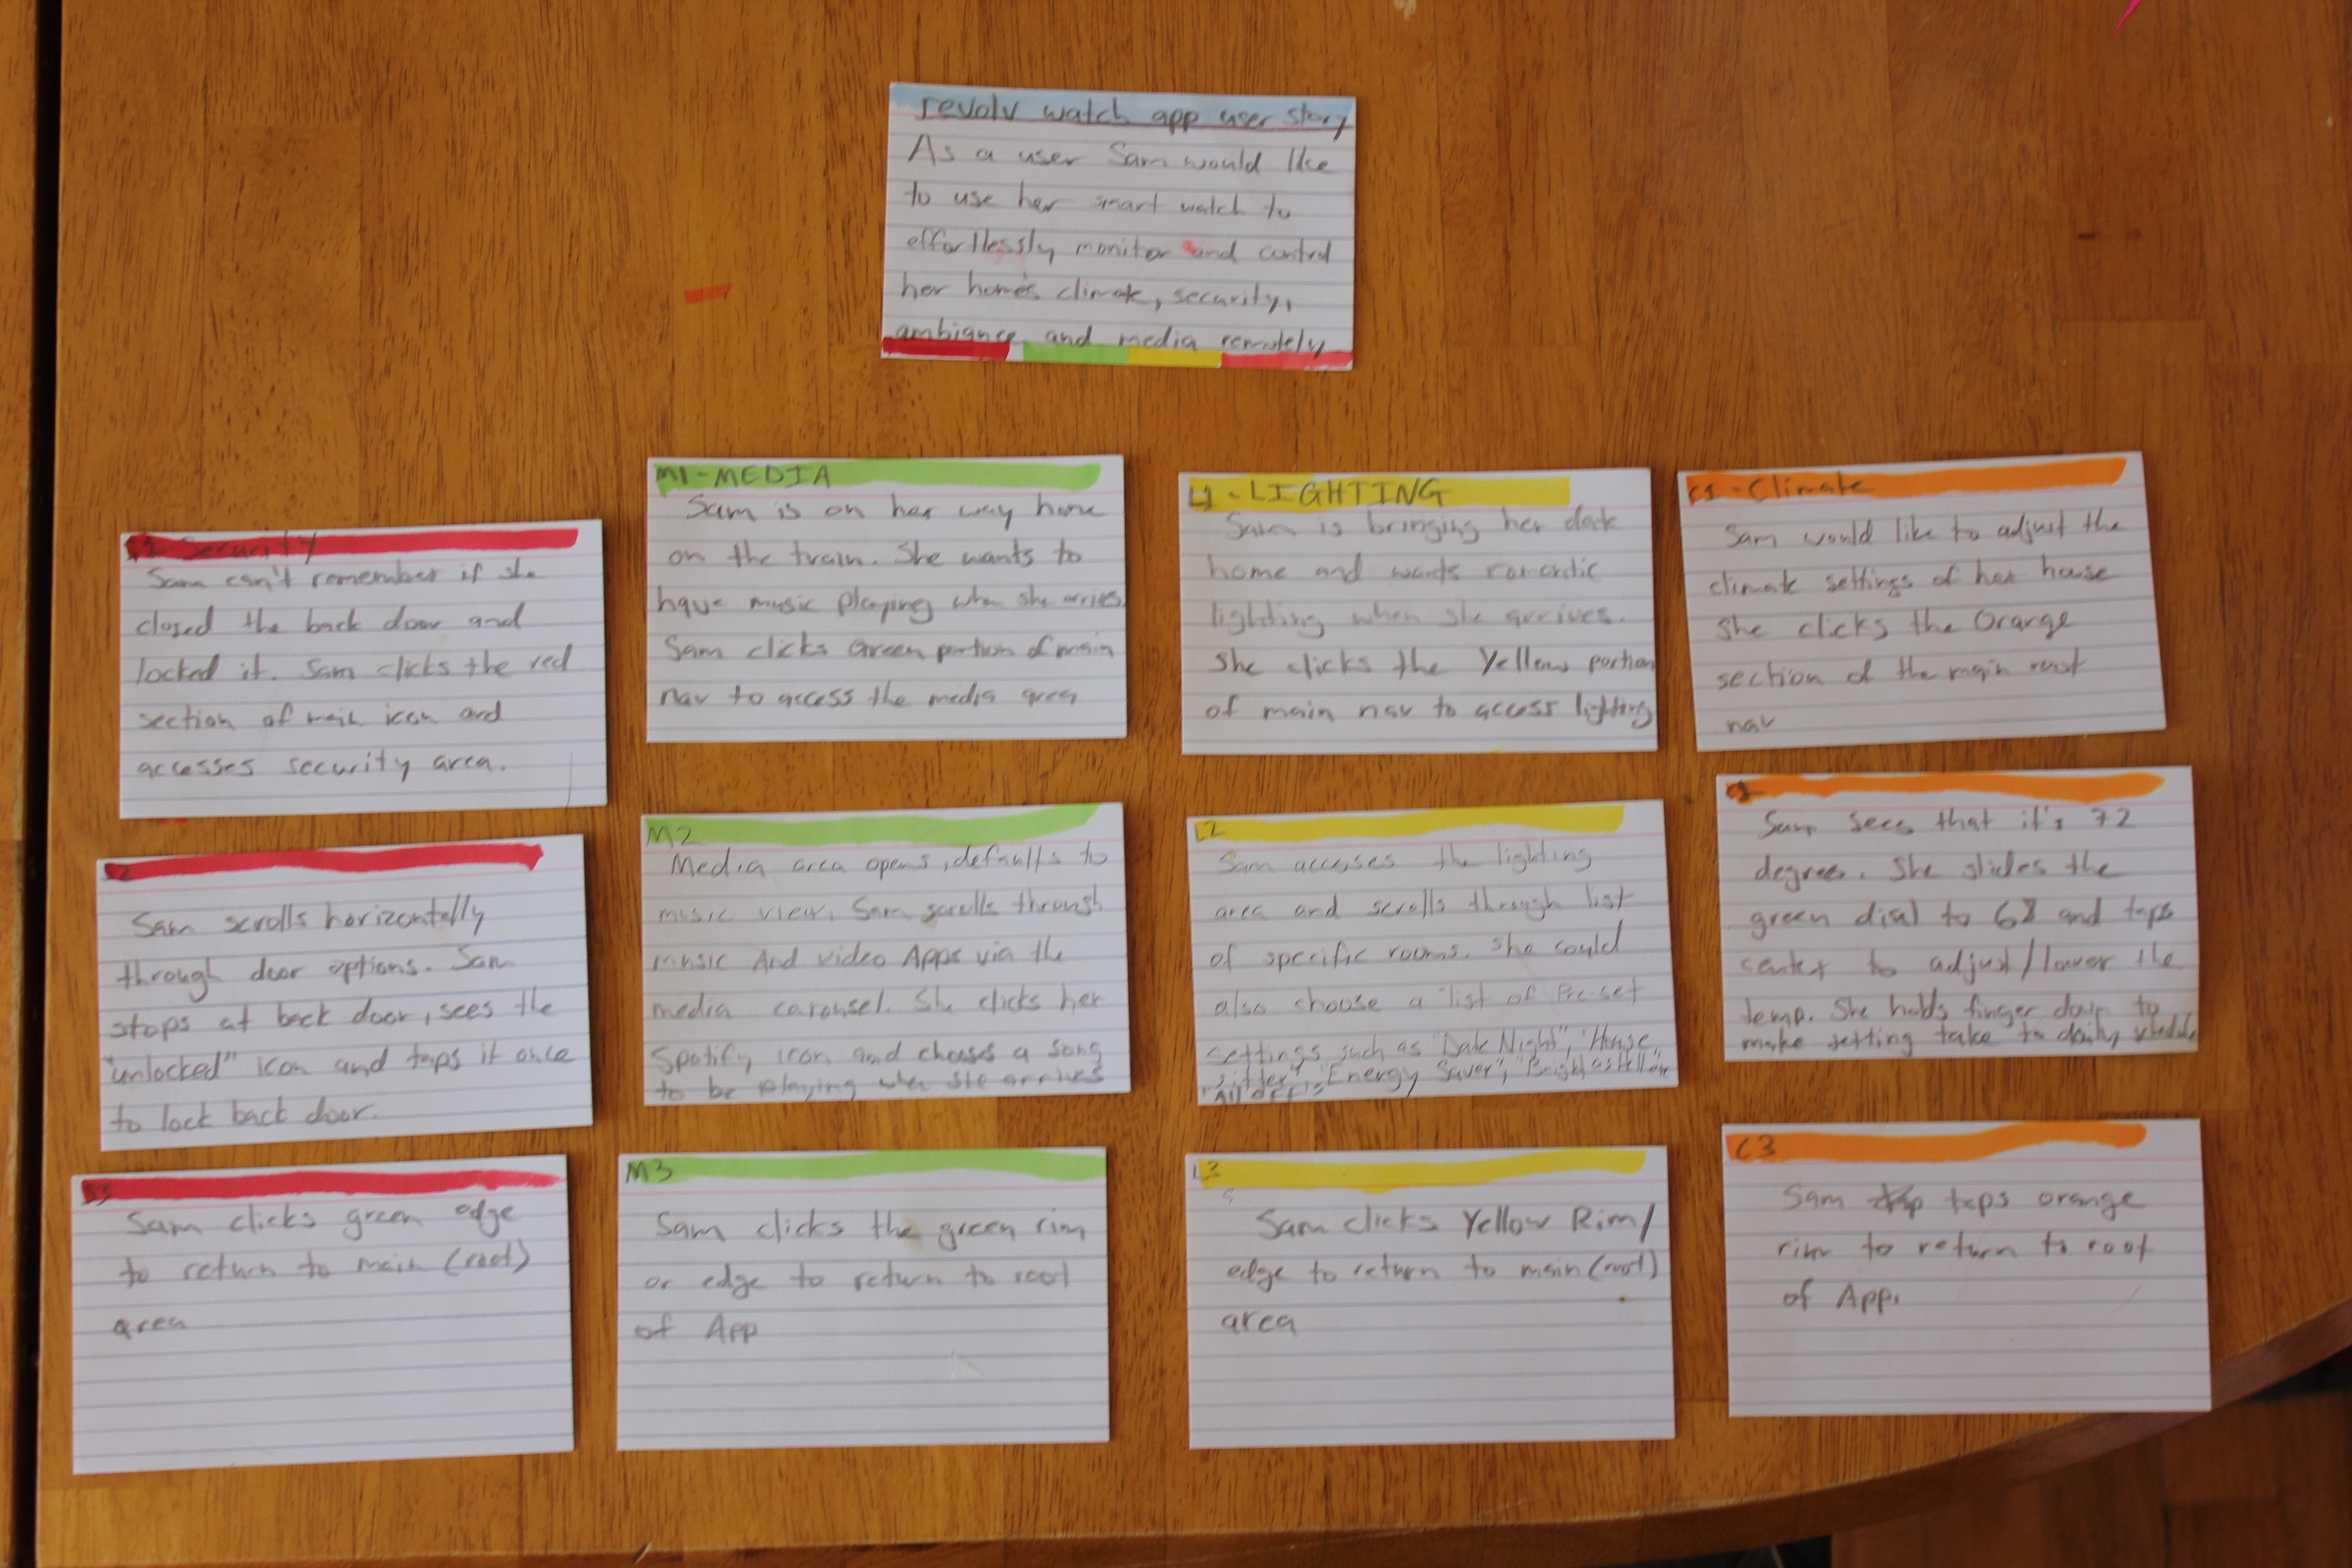 revolv watch app user story
As a user Sam would like
to use her smart watch to
effortlessly monitor and control
her home's climate, security,
ambiance and media remotely
S1-Security
Sam can't remember if she
closed the back door and
locked it. Sam clicks the red
section of main icon and
accesses security area.
S2
Sam scrolls horizontally
through door options. Sam
stops at back door, sees the
"unlocked" icon and taps it once
to lock back door.
S3
Sam clicks green edge
to return to main (root)
area
M1-MEDIA
Sam is on her way home
on the train. She wants to
have music playing when she arrives.
Sam clicks Green portion of main
nav to access the media area
M2
Media area opens, defaults to
music view. Sam scrolls through
music And video Apps via the
media carousel. She clicks her
Spotify icon and chooses a song
to be playing when she arrives
M3
Sam clicks the green rim
or edge to return to root
of App
L1-LIGHTING
Sam is bringing her date
home and wants romantic
lighting when she arrives.
She clicks the Yellow portion
of main nav to access lighting
L2
Sam accesses the lighting
area and scrolls through list
of specific rooms. She could
also choose a list of Pre-set
settings such as "Date Night", "House
sitter", "Energy Saver", "Bright as Hell" or
"All OFF"
L3
Sam clicks Yellow Rim/
edge to return to main (root)
area
C1-Climate
Sam would like to adjust the
climate settings of her house
She clicks the Orange
section of the main root
nav
C2
Sam sees that it's 72
degrees. She slides the
green dial to 68 and taps
center to adjust/lower the
temp. She holds finger down to
make setting take to daily schedule
C3
Sam taps orange
rim to return to root
of App.